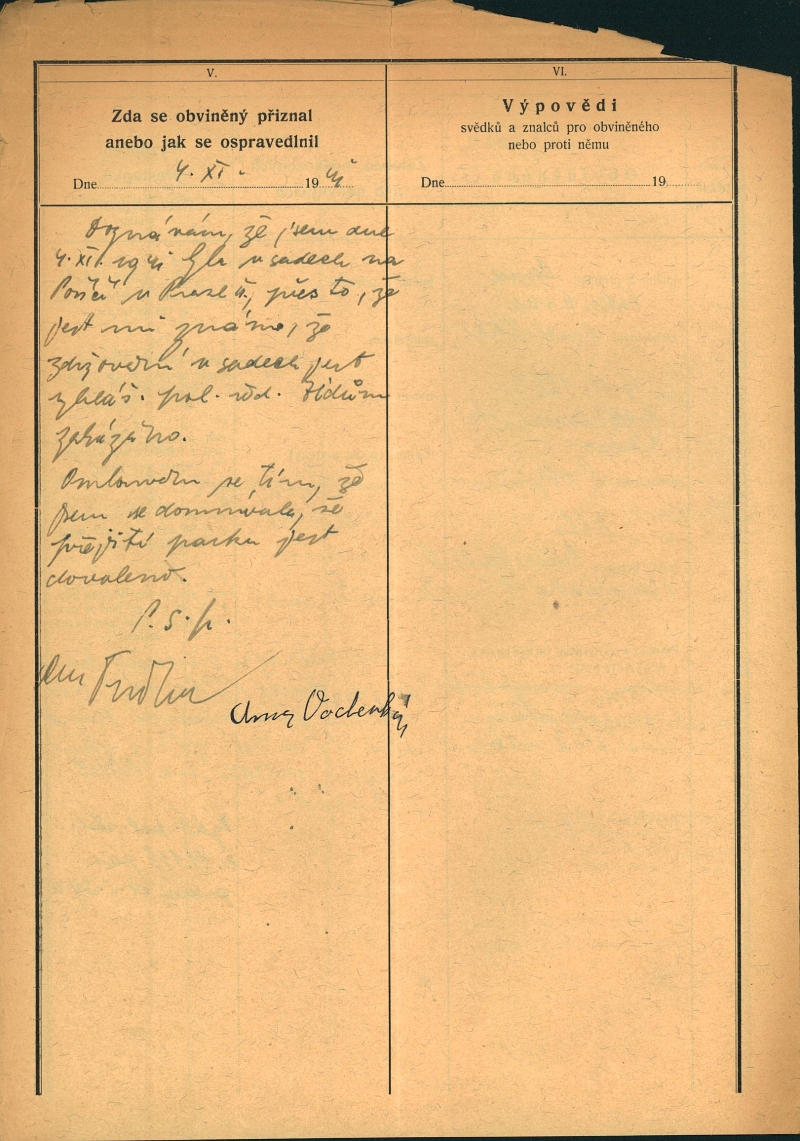 V.
Zda se obviněný přiznal
anebo jak se ospravedlnil
Dne 4. XI. 1941
Doznávám, že jsem dne
4. XI. 1941 byla v sadech na
Poříčí v Praze II, přes to, že
jest mi známo, že
zdržování v sadech jest
vyhláš. pol. řed. židům
zakázáno.
Omlouvám se tím, že
jsem se domnívala, že
přejití parku jest
dovoleno.
P. S. p.
Anny
VI.
Výpovědi
svědků a znalců pro obviněného
nebo proti němu
Dne 19